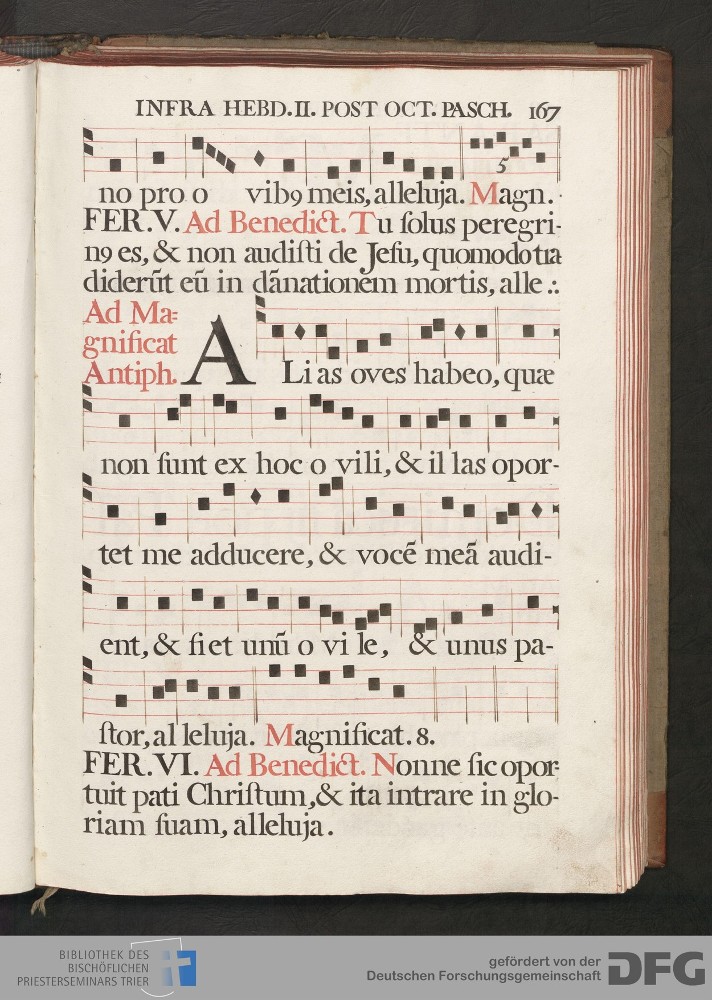 INFRA HEBD. II. POST OCT. PASCH. 167
5
no pro o vib9 meis, alleluja. Magn.
FER. V. Ad Benedict. Tu ſolus peregri-
n9 es, & non audiſti de Jeſu, quomodo tra
diderūt eū in dānationem mortis, alle .:
Ad Ma=
gnificat
Antiph.
A Li as oves habeo, quæ
non ſunt ex hoc o vili, & il las opor-
tet me adducere, & vocē meā audi-
ent, & fi et unū o vi le, & unus pa-
ſtor, al leluja. Magnificat. 8.
FER. VI. Ad Benedict. Nonne ſic opor-
tuit pati Chriſtum, & ita intrare in glo-
riam ſuam, alleluja.
BIBLIOTHEK DES
BISCHÖFLICHEN
PRIESTERSEMINARS TRIER
gefördert von der
Deutschen Forschungsgemeinschaft
DFG